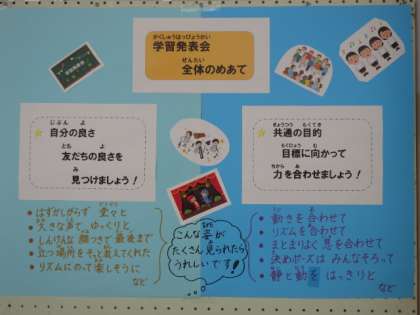 学習発表会
全体のめあて
自分の良さ
友だちの良さを
見つけましょう！
共通の目的
目標に向かって
力を合わせましょう！
はずかしがらず 堂々と
大きな声で ゆっくりと
しんけんな 顔つきで 最後まで
立つ場所をそっと教えてくれた
リズムにのって 楽しそうに
など
こんな姿が
たくさん見られたら
うれしいです！
動きを合わせて
リズムを合わせて
まとまりよく 息を合わせて
決めポーズは みんなそろって
静と動を はっきりと
など